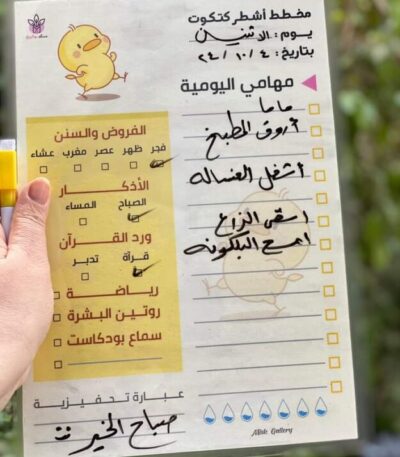 مخطط أشطر كتكوت
يوم: الاثنين
بتاريخ: ٢٤/١٠/٤
مهامي اليومية
ماما
أروق المطبخ
أشغل الغساله
اسقى الزرع
امسح البلكونه
الفروض والسنن
فجر ظهر عصر مغرب عشاء
الأذكار
الصباح المساء
ورد القرآن
قرأة تدبر
رياضة
روتين البشرة
سماع بودكاست
عبارة تحفيزية
صباح الخير
Misk Gallery